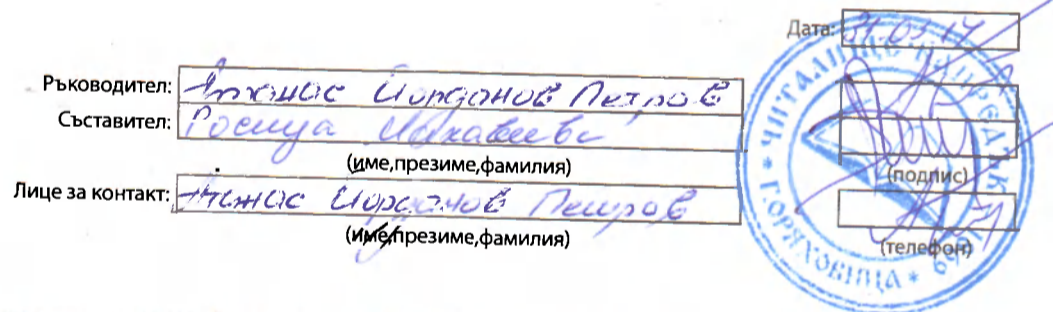 Дата: 31.03.17
Ръководител: Атанас Йорданов Петров
Съставител: Росица
(име,презиме,фамилия)
(подпис)
Лице за контакт: Атанас Йорданов Петров
(име,презиме,фамилия)
(телефон)
* ЧИТАЛИЩЕ НАПРЕДЪК * Г.ОРЯХОВИЦА